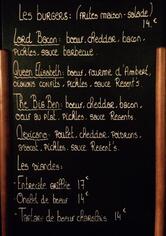 Les burgers: (frites maison-salade)
14€
Lord Bacon: boeuf, cheddar, bacon,
pickles, sauce barbecue
Queen Elisabeth: boeuf, fourme d'Ambert,
oignons confits, pickles, sauce Resent's
The Big Ben: boeuf, cheddar, bacon,
oeuf au plat, pickles, sauce Resents
Mexicano: Poulet, cheddar, poivrons,
pickles, sauce Resent's.
Les viandes:
- Entrecôte grillée 17€
- Onglet de boeuf 14€
- Tartare de boeuf charollais 14€